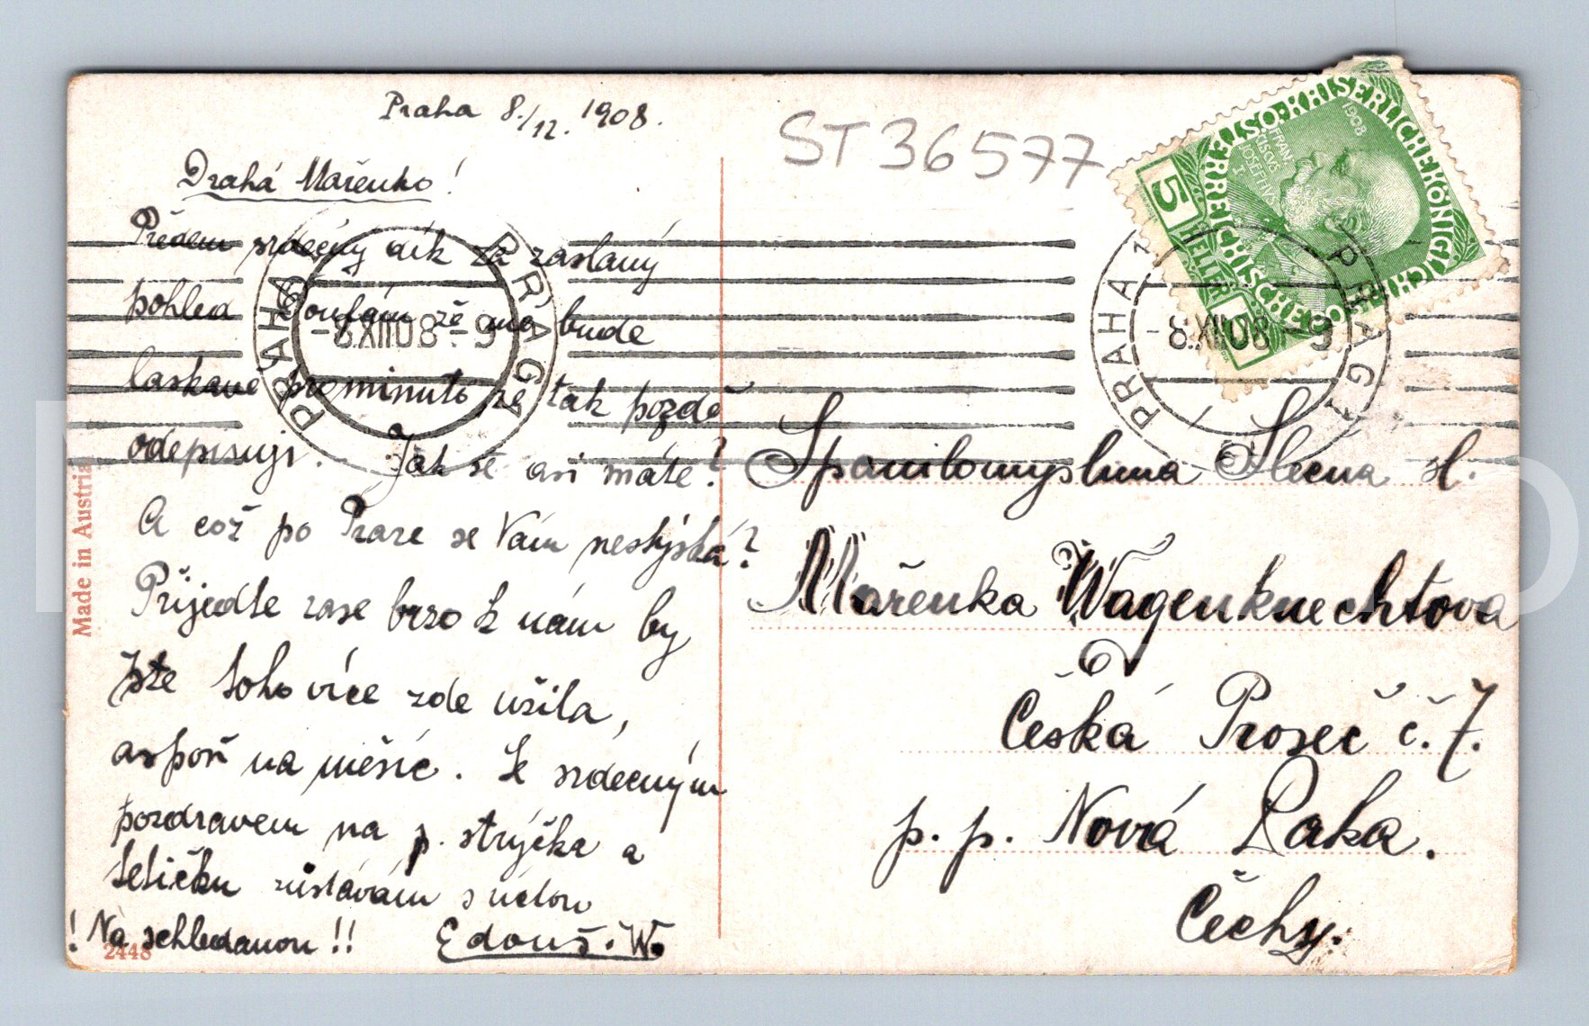 Praha 8./12. 1908.
ST 36577
Drahá Mařenko!
Předem srdečný dík za zaslaný
pohled Doufám že mo bude
laskavě prominuto že tak pozdě
odepisuji. Jak se asi máte?
A což po Praze se Vám nestýská?
Přijedte zase brzo k nám by
jste toho více zde užila,
aspoň na měsíc. Se srdečným
pozdravem na p. strýčka a
tetičku zůstávám s úctou
! Na schledanou !! Edouš. W.
2448
Made in Austria
PRAHA PRAGA
-8.XII08-9
PRAHA 1 PRAGA 1
-8.XII08-9
KAISERLICHE KÖNIGLICHE
ÖSTERREICHISCHE POST
FRANCISCVS IOSEPHVS I
1908
5 HELLER
Spanilomyslnna Slečna sl.
Mařenka Wagenknechtova
Česká Proseč č. 7.
p. p. Nová Paka.
Čechy.